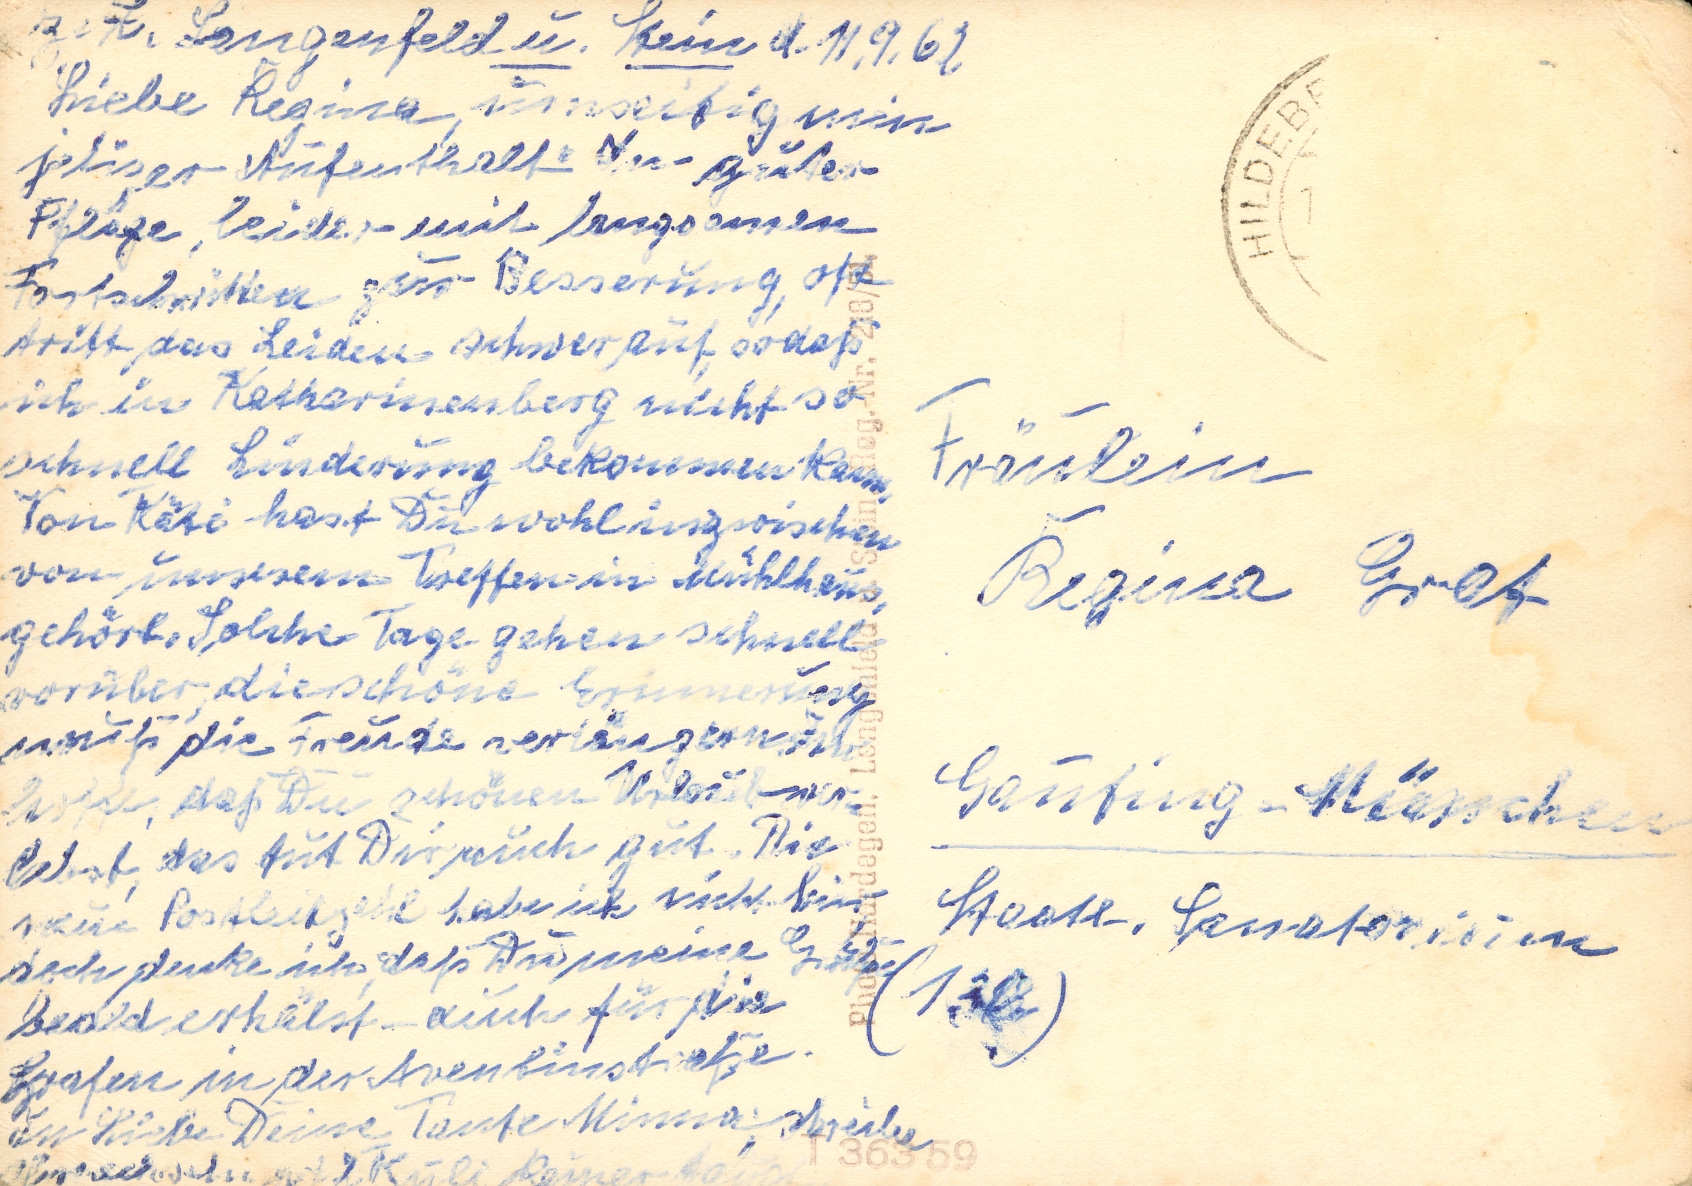 z. Zt. Lengenfeld u. Stein d. 11.9.62
Liebe Regina, umseitig mein
jetziger Aufenthalt. In guter
Pflege, leider mit langsamen
Fortschritten zur Besserung, oft
tritt das Leiden schwer auf, sodaß
ich in Katharinenberg nicht so
schnell Linderung bekommen kann.
Von Käti hast Du wohl inzwischen
von unserem Treffen in Mühlhaus.
gehört. Solche Tage gehen schnell
vorüber, die schöne Erinnerung
muß die Freude verlängern. Ich
hoffe, daß Du schönen Urlaub ver-
lebst, das tut Dir auch gut. Die
neue Postleitzahl habe ich nicht hier
doch denke ich, daß Du meine Grüße
bald erhälst - auch für die
Grafen in der Aventinstraße.
In Liebe Deine Tante Minna, schreibe
Kuli keiner
HILDEBR
1
Fräulein
Regina Graf
Gauting - München
Staatl. Sanatorium
(13b)
Photo-Hardegen, Lengenfeld u. Stein Reg.-Nr. 218/59
T 363 59